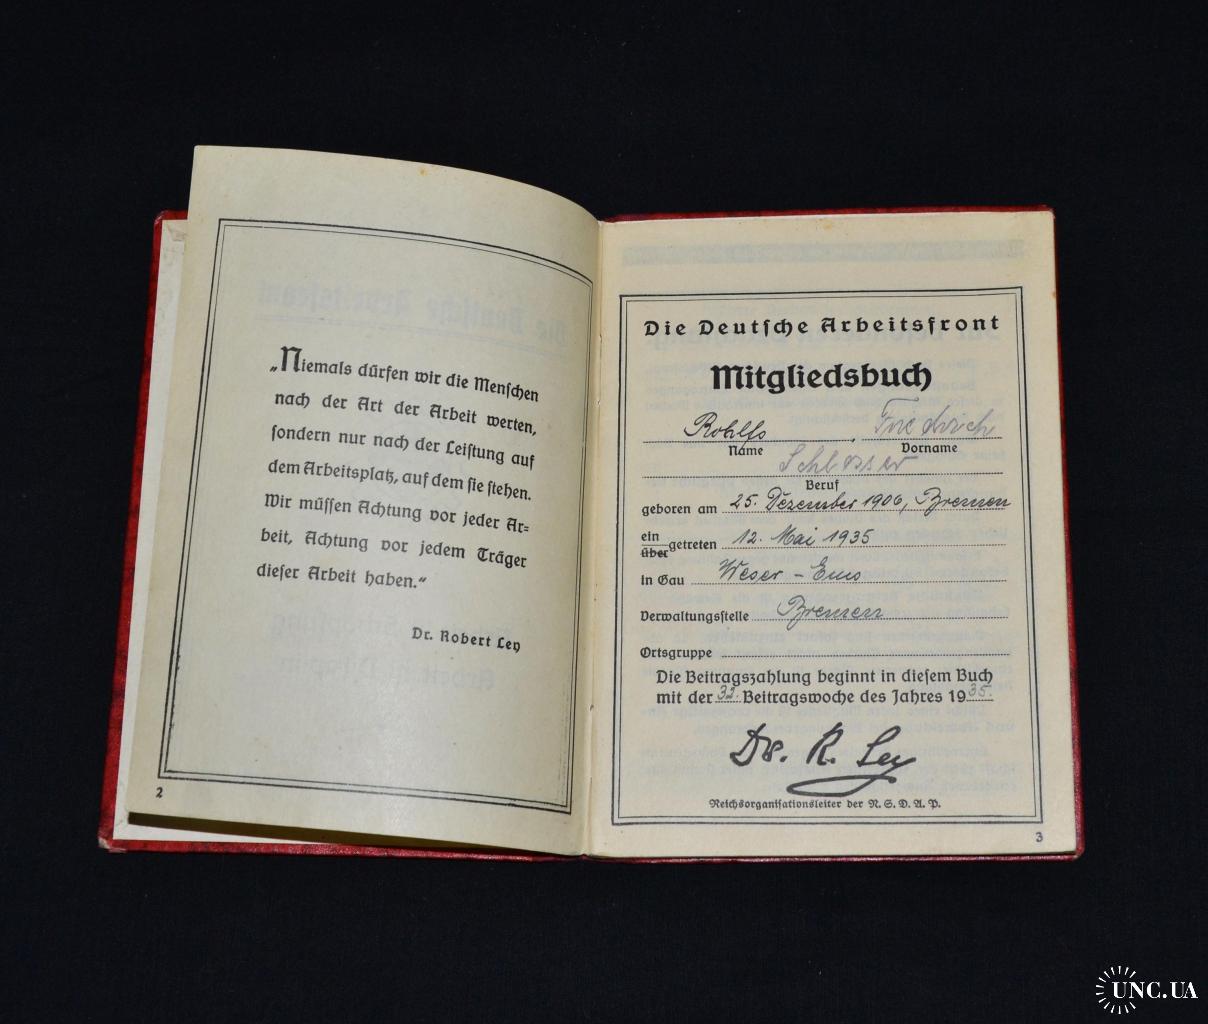 „Niemals dürfen wir die Menschen
nach der Art der Arbeit werten,
sondern nur nach der Leistung auf
dem Arbeitsplatz, auf dem sie stehen.
Wir müssen Achtung vor jeder Ar=
beit, Achtung vor jedem Träger
dieser Arbeit haben.“
Dr. Robert Ley
2
Die Deutsche Arbeitsfront
Mitgliedsbuch
Rohlfs, Friedrich
Name Vorname
Schlosser
Beruf
geboren am 25. Dezember 1906, Bremen
ein
über getreten 12. Mai 1935
in Gau Weser-Ems
Verwaltungsstelle Bremen
Ortsgruppe
Die Beitragszahlung beginnt in diesem Buch
mit der 32. Beitragswoche des Jahres 1935.
Dr. R. Ley
Reichsorganisationsleiter der N.S.D.A.P.
3
UNC.UA